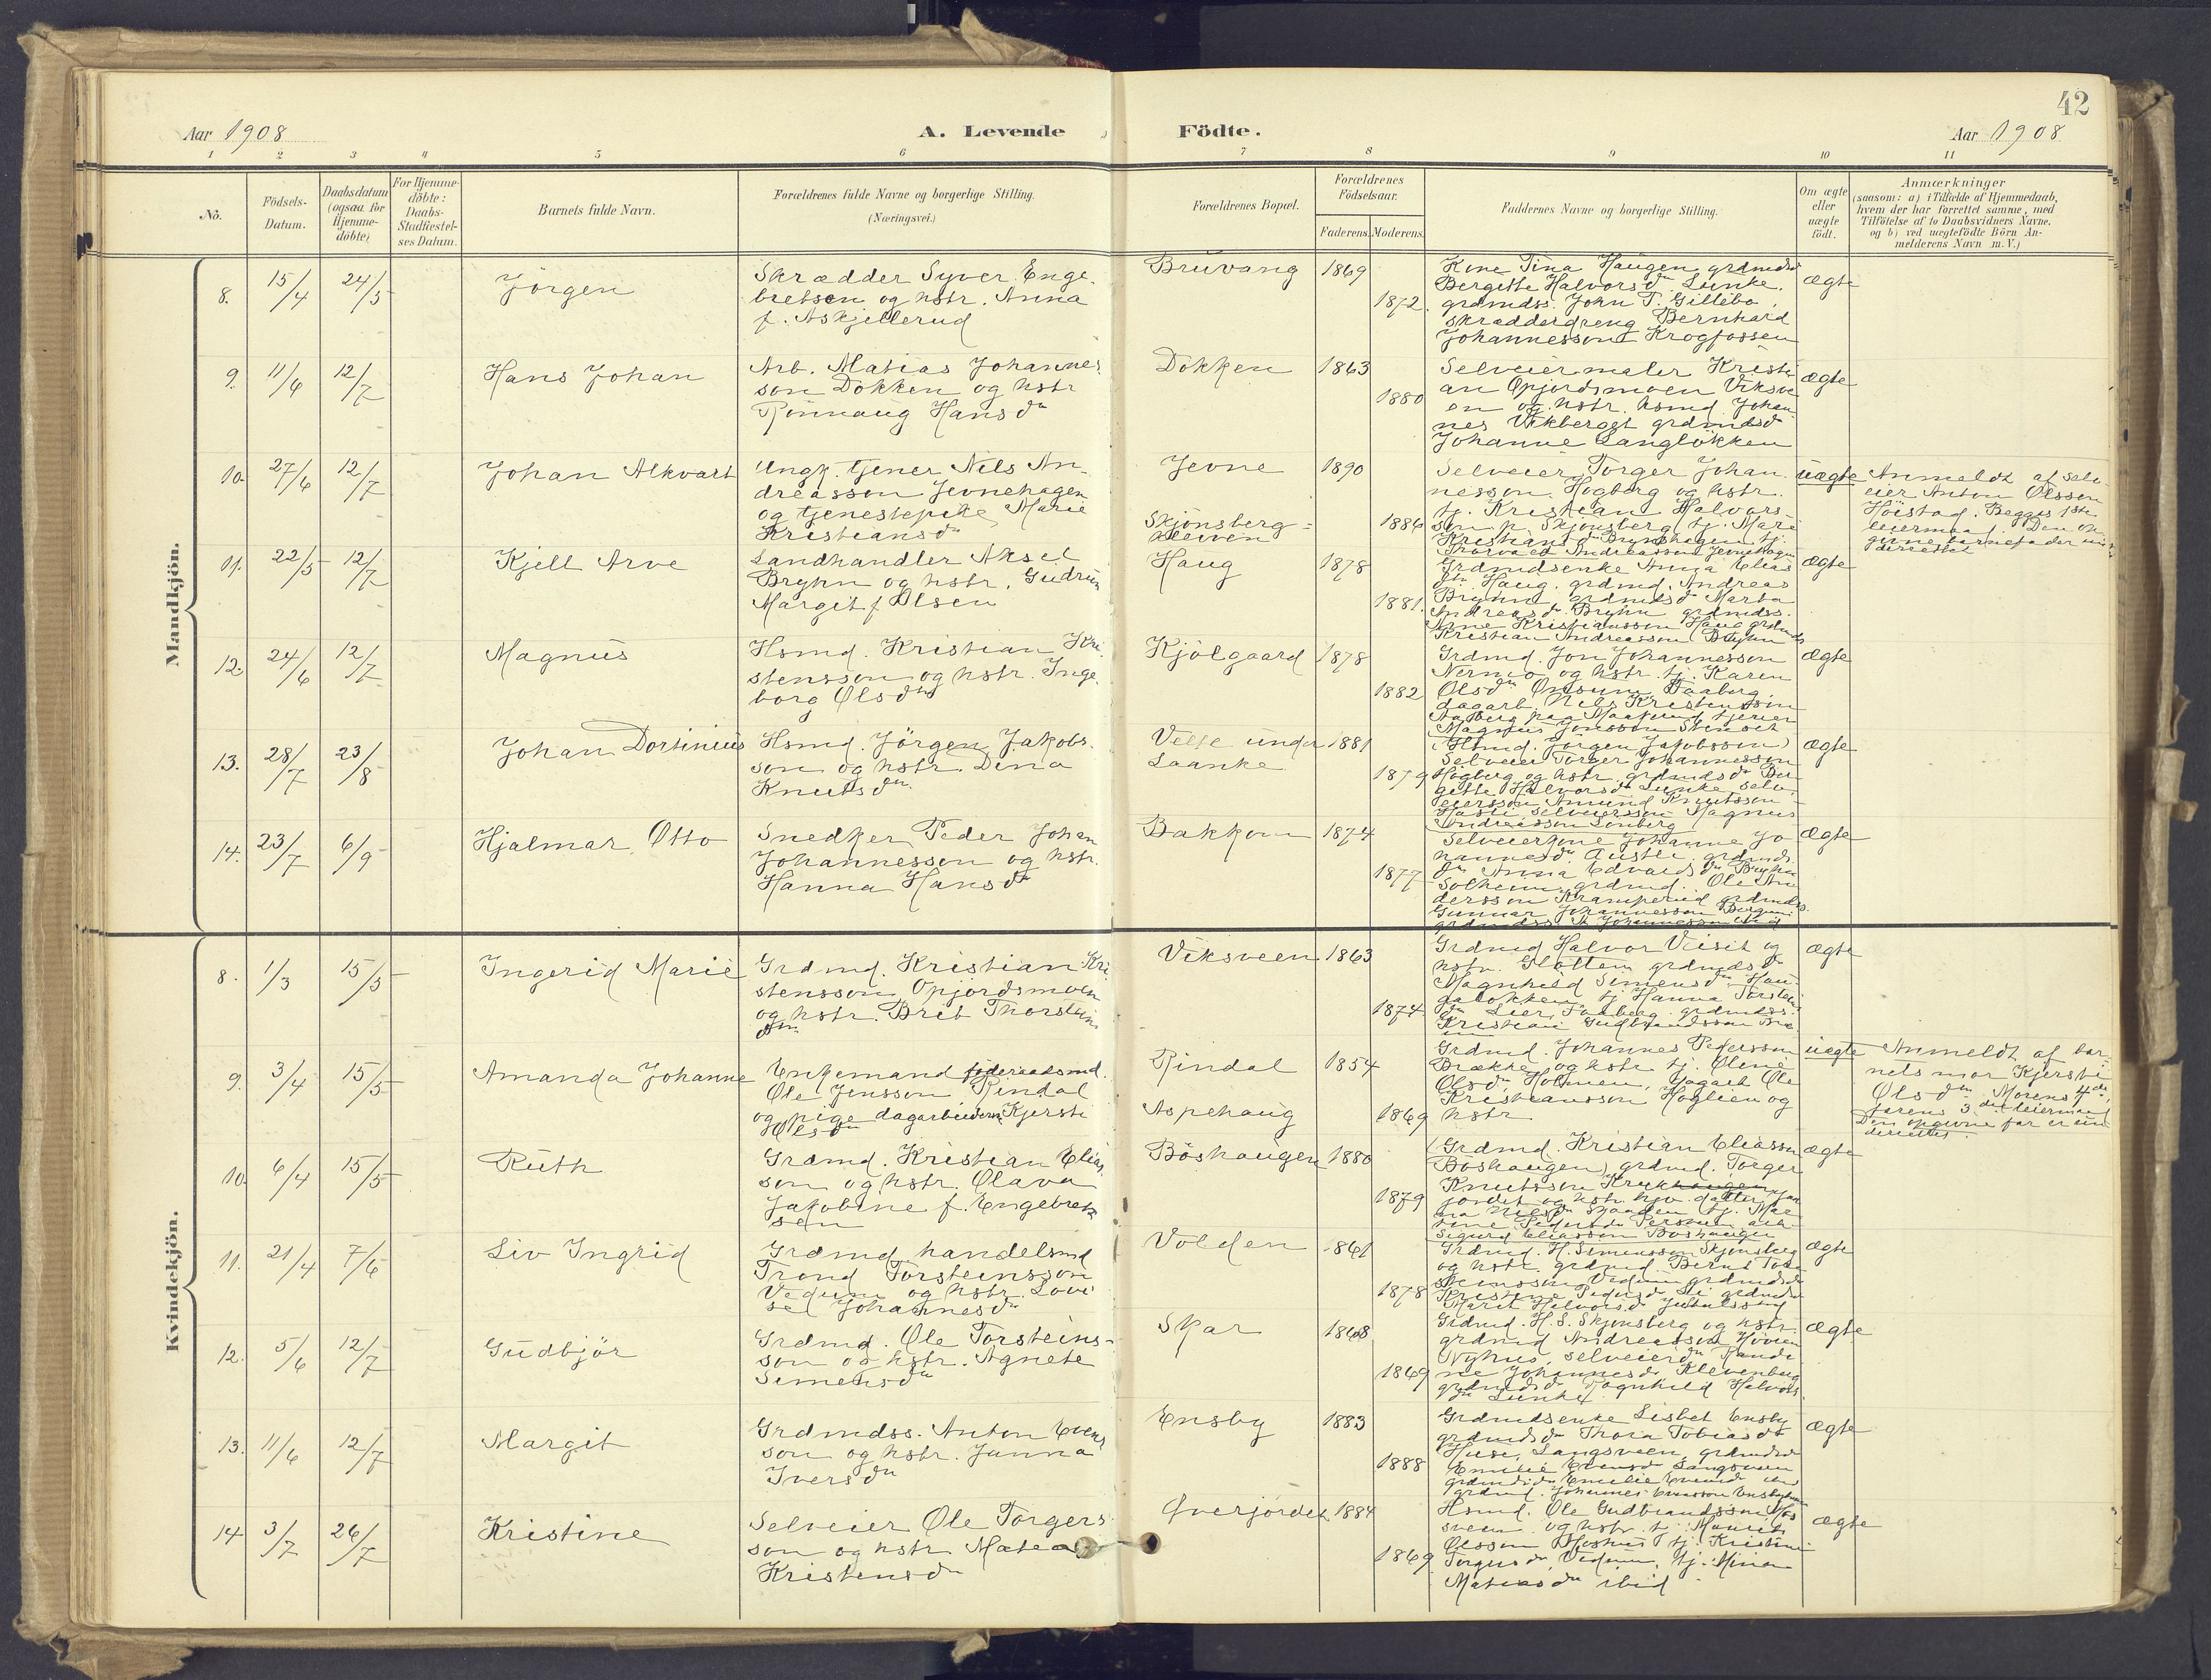 42
Aar 1908
A. Levende Födte.
Aar 1908
1 2 3 4 5 6 7 8 9 10 11
No.
Födsels-
Datum.
Daabsdatum
(ogsaa for
Hjemme-
döbte)
For Hjemme-
döbte:
Daabs-
Stadfæstel-
ses Datum.
Barnets fulde Navn.
Forældrenes fulde Navne og borgerlige Stilling.
(Næringsvei.)
Forældrenes Bopæl.
Forældrenes
Födselsaar.
Faderens. Moderens.
Faddernes Navne og borgerlige Stilling.
Om ægte
eller
uægte
födt.
Anmærkninger
(saasom: a) i Tilfælde af Hjemmedaab,
hvem der har forrettet samme, med
Tilföielse af to Daabsvidners Navne.
og b) ved uægtefödte Börn An-
melderens Navn m. V.)
Mandkjön.
8. 15/4 24/5 Jörgen
Skrædder Syver Enge-
bretsen og hstr. Anna
f. Askjellerud
Bruvang 1869
1872.
Kone Tina Haugen grdmdsd
Bergitte Halvorsdtr Lunke.
grdmdss. John T. Gillebo,
skrædderdreng Bernhard
Johannesson Krogfossen
ægte
9. 11/6 12/7 Hans Johan
Arb. Matias Johannes-
son Dokken og hstr
Rönnaug Hansdtr
Dokken 1863
1880
Selveier maler Kristi
an Opjordsmoen Viksve
en og hstr. hsmd. Johan
nes Vekberget grdmdsd
Johanne Langlökken
ægte
10. 27/6 12/7 Johan Alkvart
Ungk. tjener Nils An-
dreasson Jevnehagen
og tjenestepike Marie
Kristiansdtr
Jevne 1890
Skjönsberg=
kleiven
1886
Selveier Torger Johan
nesson Hogberg og hstr.
tj. Kristian Halvors-
son p. Skjönsberg tj. Mari
uægte
Anmeldt af selv-
eier Anton Olsson
Höistad. Begges 1ste
leiermaal. Den op-
givne barnefader un
derrettet
11. 22/5 12/7 Kjell Arve
Landhandler Aksel
Bryhn og hstr. Gudrun
Margit f. Olsen
Haug 1878
1881.
Grdmdsenke Anna Elias
dtr. Haug. grdmd. Andreas
Bryhn grdmdsd Marta
Andreasdtr Bryhn grdmdss.
Arne Kristiansson Haug grdmds
Kristian Andreasson Bryhn
ægte
12. 24/6 12/7 Magnus
Hsmd. Kristian Kri-
stensson og hstr. Inge-
borg Olsdtr
Kjölgaard 1878
1882
Grdmd. Jon Johannesson
Nermo og hstr. tj. Karen
Olsdtr Onsum Faaberg.
dagarb. Nils Kristensson
ægte
13. 28/7 23/8 Johan Dortinius
Hsmd. Jörgen Jakobs-
son og hstr. Dina
Knutsdtr.
Velte under
Laanke
1881
1879
(Hsmd. Jörgen Jakobsson)
Selveier Torger Johannesson
Hogberg og hstr. grdmdsdtr Ber
gitte Halvorsdtr Lunke, selv
eiersson Amund Knutsson
ægte
14. 23/7 6/9 Hjalmar Otto
Snedker Peder Johan
Johannesson og hstr.
Hanna Hansdtr
Bakkom 1874
1877
Selveierkone Johanne Jo
hannesdtr Austli. grdmds
dtr Anna Edvardsdtr Bryhn
Solheim grdmd. Ole An
dersson Kramperud grdmdss.
Gunnar Johannesson
ægte
Kvindekjön.
8. 1/3 15/5 Ingerid Marie
Grdmd. Kristian Kri
stensson Opjordsmoen
og hstr. Brit Thorsteins
dtr
Viksveen 1863
1874
Grdmd Halvor Veisit og
hstr. Slottem grdmdsdtr
Magnhild Simensdtr Hau-
galökken tj Hanna Torsteins
dtr Lier, Faaberg. grdmdss.
Kristian Gudbrandsson
ægte
9. 3/4 15/5 Amanda Johanne
Enkemand föderaadsmd.
Ole Jensson Rindal
og pige dagarbeiderske Kjersti
Olsdtr
Rindal 1854
Aspehaug 1869
Grdmd. Johannes Pedersson
Brække og hstr tj. Oline
Olsdtr Holmen, dagarb. Ole
Kristiansson Höglien og
hstr
uægte
Anmeldt af bar-
nets mor Kjersti
Olsdtr. Morens 4de,
farens 3die leiermaal
Den opgivne far er un
derrettet.
10. 6/4 15/5 Ruth
Grdmd. Kristian Elias
son og hstr. Olava
Jakobine f. Engebret
sen
Böshaugen 1880
1879
(Grdmd. Kristian Eliasson
Böshaugen) grdmd. Torger
Knutsson
Sigurd Eliasson Böshaugen
ægte
11. 21/4 7/6 Liv Ingrid
Grdmd handelsmd
Trond Torsteinsson
Vedum og hstr. Lovi
se Johannesdtr
Volden 1861
1878
Grdmd. H. Simensson Skjönsberg
og hstr. grdmd. Bernt Tor
steinsson Vedum grdmdsdtr
Kristine Pedersdtr Li grdmdsd
Marit Halvorsdtr
ægte
12. 5/6 12/7 Gudbjör
Grdmd. Ole Torsteins-
son og hstr. Agnete
Simensdtr
Skar 1868
1869
Grdmd. H. S. Skjönsberg og hstr.
grdmd Andreas
Nyhus, selveierdtr Randi
ne Johannesdtr Klevenberg
grdmdsdtr Ragnhild Halvors
dtr Lunke
ægte
13. 11/6 12/7 Margit
Grdmdss. Anton Evens
son og hstr. Janna
Iversdtr
Ensby 1883
1888
Grdmdsenke Lisbet Ensby
grdmdsdtr Thora Tobiasdtr
Huse, Langsveen, grdmdsdtr
Emilie Evensdtr Langsveen
ægte
14. 3/7 26/7 Kristine
Selveier Ole Torgers
son og hstr. Matea
Kristensdtr
Qverjordet 1884
1869
Hsmd. Ole Gudbrandsson Mos
sveen og hstr. tj. Maurits
Olsson Moshus tj. Kristine
Torgersdtr Vedum, tj. Mina
Matiasdtr ibid
ægte